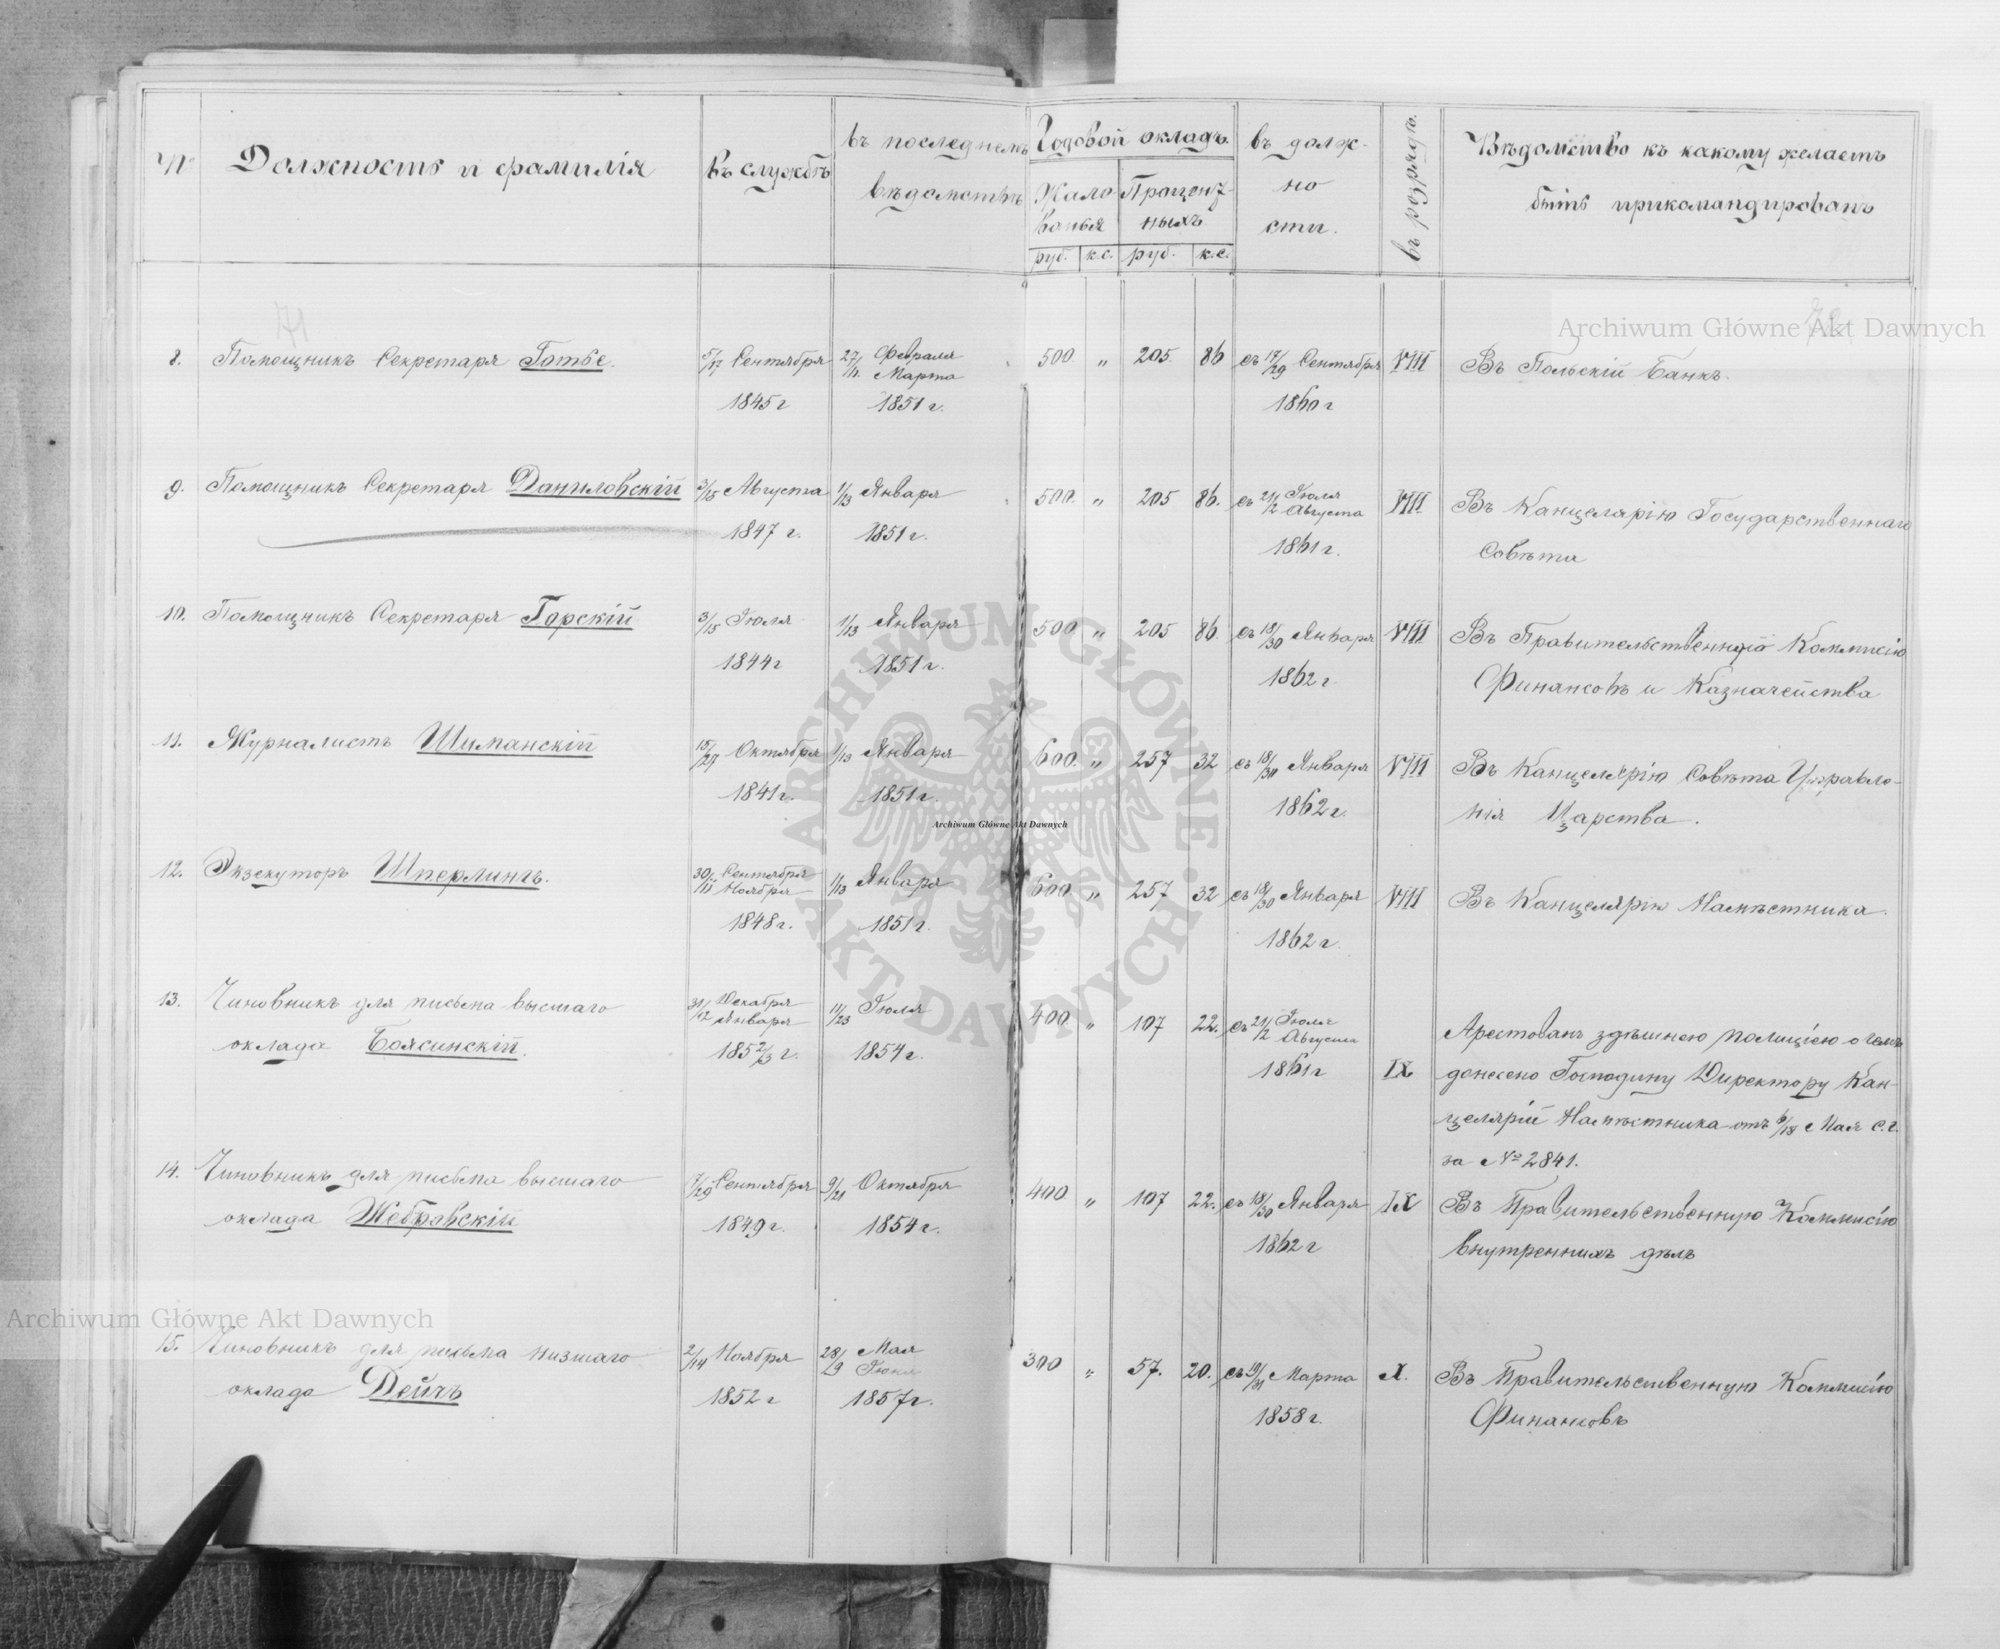 № Должность и фамилія въ службѣ въ последнемъ вѣдомствѣ Годовой окладъ въ долж-
Жало- Процент- но
ванья ныхъ сти.
руб. к.с. руб. к.с.
въ разрядѣ.
Вѣдомство къ какому желаетъ
быть прикомандированъ
71
Archiwum Główne Akt Dawnych
8. Помощникъ Секретаря Готье. 5/17 Сентября 27/11 Февраля Марта 500 „ 205 86 съ 17/29 Сентября VIII Въ Польскій Банкъ.
1845 г 1851 г. 1860 г
9. Помощникъ Секретаря Даниловскій 3/15 Августа 1/13 Января 500. „ 205 86. съ 21/2 Іюля Августа VIII Въ Канцелярію Государственнаго
1847 г. 1851 г. 1861 г. Совѣта
10. Помощникъ Секретаря Горскій 3/15 Іюля 1/13 Января 500 „ 205 86 съ 18/30 Января VIII Въ Правительственную Коммисію
1844 г 1851 г. 1862 г. Финансовъ и Казначейства
11. Журналистъ Шиманскій 15/27 Октября 1/13 Января 600. „ 257 32 съ 18/30 Января VIII Въ Канцелярію Совѣта Управле-
1841 г. 1851 г. 1862 г. нія Царства.
ARCHIWUM GŁÓWNE AKT DAWNYCH
Archiwum Główne Akt Dawnych
12. Экзекуторъ Шперлингъ. 30/11 Сентября Ноября 1/13 Января 600 „ 257 32 съ 18/30 Января VIII Въ Канцелярію Намѣстника.
1848 г. 1851 г. 1862 г.
13. Чиновникъ для письма высшаго 31/12 Декабря Января 11/23 Іюля 400 „ 107 22. съ 21/2 Іюля Августа Арестованъ здѣшнею полиціею о чемъ
оклада Боясинскій. 1852/3 г. 1854 г. 1861 г IX донесено Господину Директору Кан-
целяріи Намѣстника отъ 6/18 Мая с.г.
за № 2841.
14. Чиновникъ для письма высшаго Сентября 9/21 Октября 400 „ 107 22. съ 18/30 Января IX Въ Правительственную Коммисію
оклада Жебравскій 1849 г. 1854 г. 1862 г внутреннихъ дѣлъ
Archiwum Główne Akt Dawnych
15. Чиновникъ для письма низшаго 2/14 Ноября 28/9 Мая Іюня 300 „ 57. 20. съ 19/31 Марта X. Въ Правительственную Коммисію
оклада Дейчъ 1852 г 1857 г. 1858 г. Финансовъ